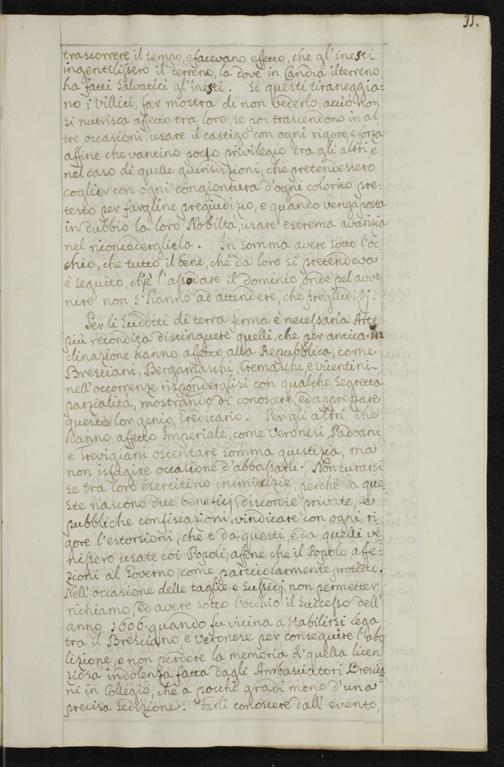 31.
trascorrere il tempo, e facevano effetto, che gl'inesti
ingentilissero il terreno, la dove in Candia il terreno
ha fatti salvatici gl'inesti. Se questi tiraneggia:
no i Villici, far mostra di non vederlo, acciò non
si nutrisca affetto tra loro, se poi trascendono in al
tre occasioni, usare il castigo con ogni rigore, e forza
affine che vantino poco privilegio tra gli altri e
nel caso di quelle giurisdizioni, che pretendessero
coglier con ogni congiontura d'ogni colorito pre:
testo per fargline pregiudizio, e quando venga posta
in dubbio la loro Nobiltà, usare estrema avarizia
nel riconcedergliela. In somma avere sotto l'oc
chio, che tutto il bene, che da loro si pretendeva
è seguito, ch'è l'assodare il dominio onde pel avve
nire non s'hanno ad attendere, che pregiudizj.
Per li sudditi di terra ferma è necessaria Arte
più recondita distinguere quelli, che per antica in
clinazione hanno affetto alla Repubblica, come
Bresciani, Bergamaschi, Cremaschi, e Vicentini
nell'occorrenze rispondergli si con qualche segretta
parzialità, mostrando di conoscere, ed apprezzare
questo lor genio Ereditario. Per gli altri, che
hanno affetto Imperiale, come Veronesi, Padoani
e Trevigiani ostentare somma giustizia, ma
non isfugire occasione d'abbassarli. Non curarsi
se tra loro esercitino inimicizie, perchè da que
ste nascono due beneficj, discordie private, e
pubbliche confiscazioni, vindicare con ogni ri
gore l'estorsioni, che e da questi, e da quelli ve
nissero usate coi Popoli, affine che il Popolo affe
zioni al Governo, come particolarmente protetto.
Nell'occasione delle taglie e sussidj non permetter
richiamo, ed avere sotto l'occhio il successo dell'
anno 1606. quando fu vicina a stabilirsi lega
tra il Bresciano e Veronese per conseguire l'abo
lizione, e non perdere la memoria di quella licen
ziosa indolenza fatta dagli Ambasciatori Brescia
ni in Collegio, che a pochi gradi meno d'una
precisa sedizione. Farli conoscere dall'evento,